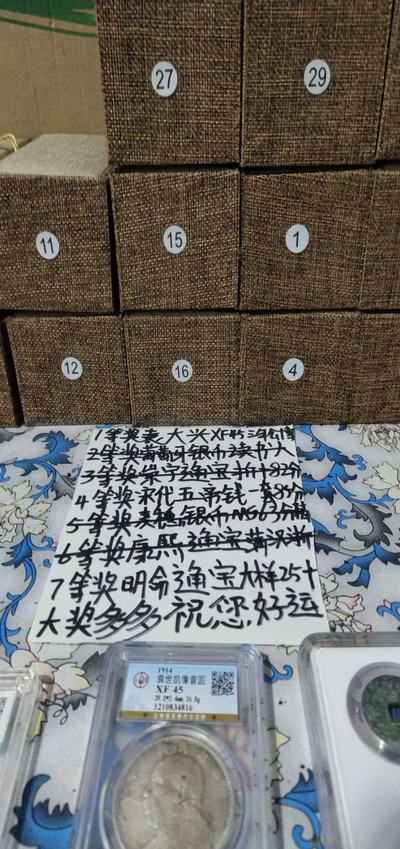 27
29
11
15
1
12
16
4
1等奖袁大头XF45三年
2等奖葡萄牙银币
3等奖崇宁通宝折十82分
4等奖宋代五帝钱一套85分
5等奖麦穗银币MS63分
6等奖康熙通宝满汉浙
7等奖明命通宝大样25十
大奖多多祝您好运
1914
袁世凯像壹圆
XF 45
1210834816